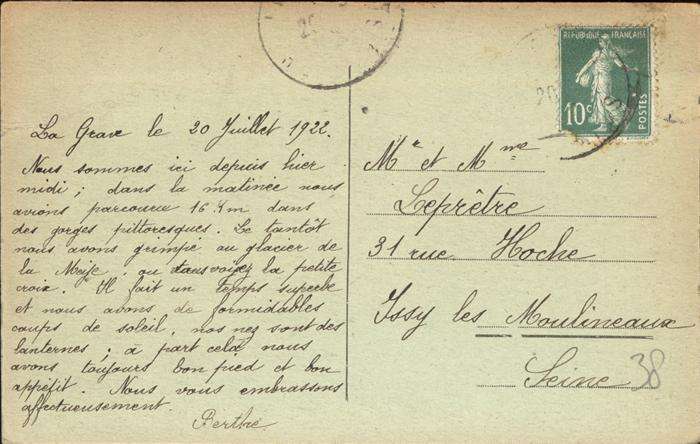 La Grave le 20 Juillet 1922.
Nous sommes ici depuis hier
midi ; dans la matinée nous
avions parcouru 16 Km dans
des gorges pittoresques. Ce tantôt
nous avons grimpé au glacier de
la Meije, où vous voyez la petite
croix. Il fait un temps superbe
et nous avons de formidables
coups de soleil, nos nez sont des
lanternes ; à part cela nous
avons toujours bon pied et bon
appétit. Nous vous embrassons
affectueusement.
Berthe
RÉPUBLIQUE FRANÇAISE
10c
POSTES
Mr et Mme
Leprêtre
31 rue Hoche
Issy les Moulineaux
Seine
38